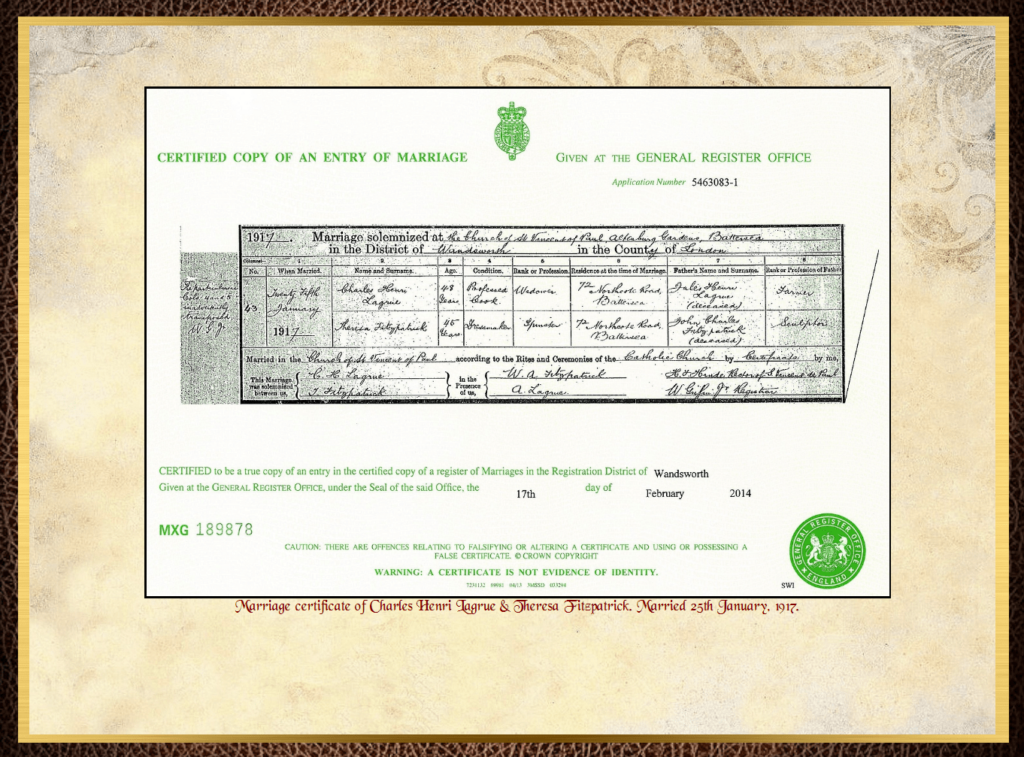 CERTIFIED COPY OF AN ENTRY OF MARRIAGE
GIVEN AT THE GENERAL REGISTER OFFICE
Application Number 5463083-1
1917. Marriage solemnized at the Church of St Vincent of Paul, Altenburg Gardens, Battersea
in the District of Wandsworth in the County of London
Columns:— 1 2 3 4 5 6 7 8
No. When Married. Name and Surname. Age. Condition. Rank or Profession. Residence at the time of Marriage. Father's Name and Surname. Rank or Profession of Father
43 Twenty Fifth January 1917
Charles Henri Lagrue 48 Years Professed Cook Widower Northcote Road, Battersea Jules Henri Lagrue (deceased) Farmer
Theresa Fitzpatrick 45 Years Dressmaker Spinster Northcote Road, Battersea John Charles Fitzpatrick (deceased) Sculptor
Married in the Church of St Vincent of Paul according to the Rites and Ceremonies of the Catholic Church by Certificate by me,
This Marriage was solemnized between us,
C. H. Lagrue
T. Fitzpatrick
in the Presence of us,
W. A. Fitzpatrick
A. Lagrue
H. F. Hinde Rector of S. Vincent de Paul
Registrar
CERTIFIED to be a true copy of an entry in the certified copy of a register of Marriages in the Registration District of Wandsworth
Given at the GENERAL REGISTER OFFICE, under the Seal of the said Office, the 17th day of February 2014
MXG 189878
CAUTION: THERE ARE OFFENCES RELATING TO FALSIFYING OR ALTERING A CERTIFICATE AND USING OR POSSESSING A
FALSE CERTIFICATE. © CROWN COPYRIGHT
WARNING: A CERTIFICATE IS NOT EVIDENCE OF IDENTITY.
GENERAL REGISTER OFFICE
ENGLAND
SWI
Marriage certificate of Charles Henri Lagrue & Theresa Fitzpatrick. Married 25th January, 1917.